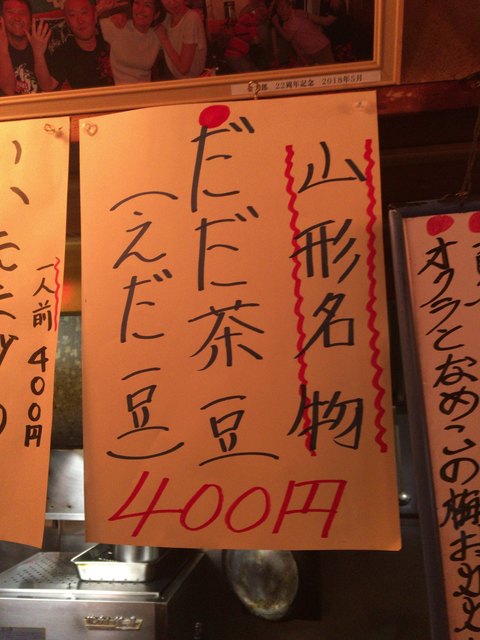 22周年記念 2018年5月
山形名物
だだ茶豆
(えだ豆)
400円
一人前 400円
オクラとなめこの梅おろし